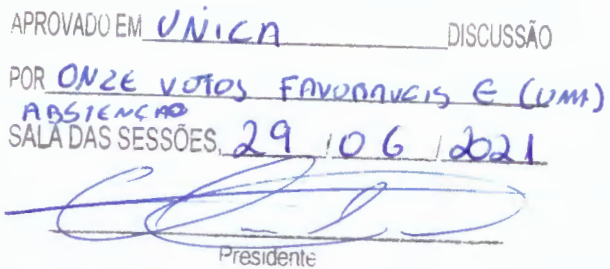 APROVADO EM UNICA DISCUSSÃO
POR ONZE VOTOS FAVORAVEIS E (UMA)
ABSTENÇÃO
SALA DAS SESSÕES, 29 / 06 / 2021
Presidente